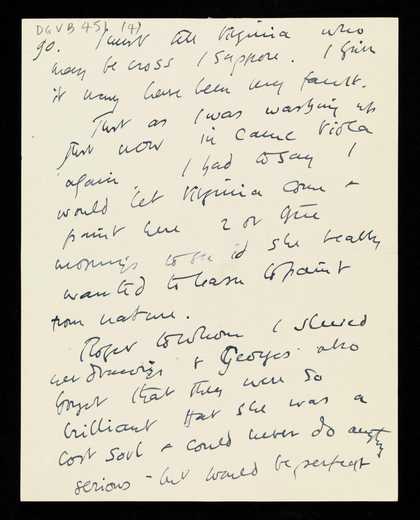 DGVB 45b (4)
go. I must tell Virginia who
may be cross I suppose. I give
it may have been my fault.
Just as I was washing up
just now in came Viola
again. I had to say I
would let Virginia come &
paint here 2 or three
mornings to see if she really
wanted to learn to paint
from nature.
Roger to whom I showed
her drawings & Georges also
that they were so
brilliant that she was a
lost soul & could never do anything
serious - but would be perfect